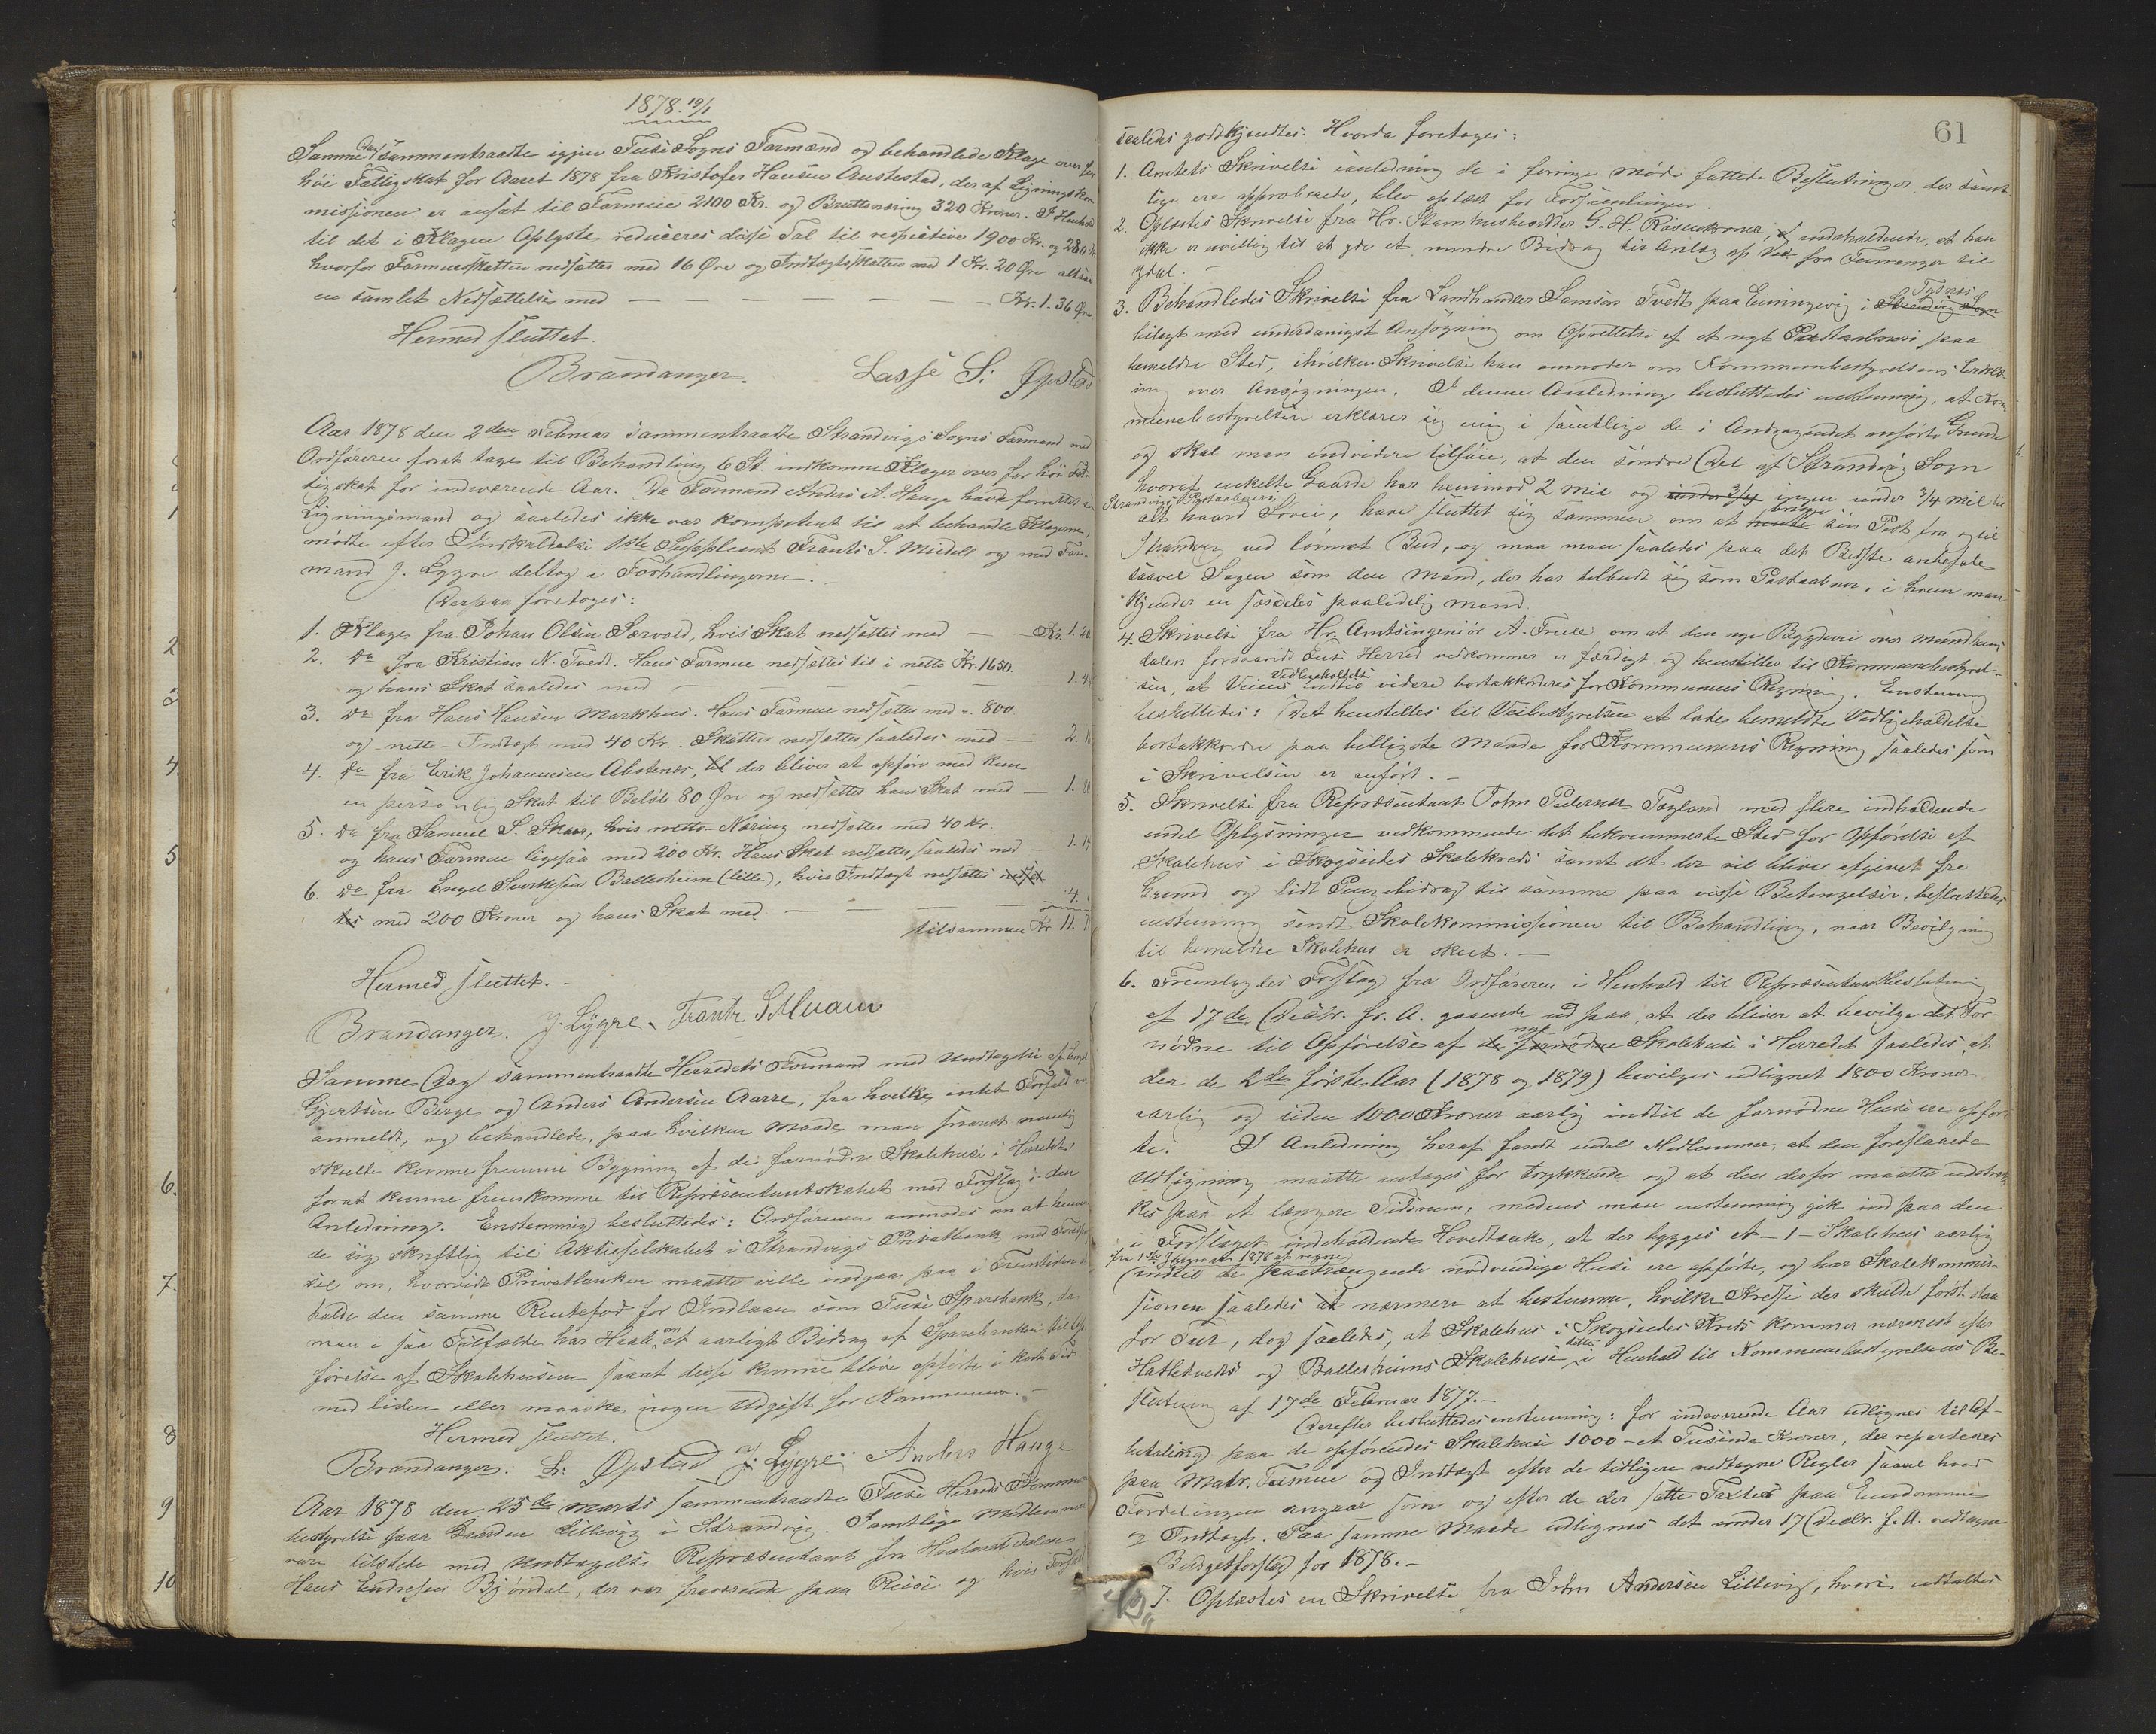 1878. 19/1
Samme Dag sammentraadte igjen Fuse Sogns Formænd og behandlede Klage over for
høi Fattigskat for Aaret 1878 fra Kristofer Hansen Austestad, der af Ligningskom
missionen er ansat til Formue 2100 Kr. og Bruttonæring 320 Kroner. I Henhold
til det i Klagen Oplyste reduceres disse Tal til respective 1900 Kr. og 280 Kr
hvorfor Formuesskatten nedsættes med 16 Øre og Indtægtsskatten med 1 Kr. 20 Øre altsaa
en samlet Nedsættelse med — — — — — — Kr. 1. 36 Øre
Hermed sluttet.
Brandanger. Lasse S: Øpstad
Aar 1878 den 2den Februar sammentraadte Strandvigs Sogns Formænd med
Ordføreren forat tage til Behandling 6 St. indkomne Klager over for høi Fat-
tigskat for indeværende Aar. Da Formand Anders A. Hauge havde forrettet som
Ligningsmand og saaledes ikke var kompetent til at behandle Klagerne,
mødte efter Indkaldelse 1ste Suppleant Frants S. Miedell og med For-
mand J. Lygre deltog i Forhandlingerne.
Derpaa foretoges:
1. Klage fra Johan Olsen Sævold, hvis Skat nedsættes med — Kr. 1. 20
2. Do fra Kristian N. Tvedt. Hans Formue nedsættes til i netto Kr. 1650.
og hans Skat saaledes med — — — — 1.
3. Do fra Hans Hansen Markhus. Hans Formue nedsættes med 800
og netto-Indtægt med 40 Kr. Skatten nedsættes saaledes med — 2.
4. Do fra Erik Johannesen Abotsnes, til der bliver at opføre med kun
en personlig Skat til Beløb 80 Øre og nedsættes hans Skat med — 1.
5. Do fra Samuel S. Skaar, hvis netto-Næring nedsættes med 40 Kr.
og hans Formue ligesaa med 200 Kr. Hans Skat nedsættes saaledes med — 1.
6. Do fra Engel Sverkesen Ballesheim (lille), hvis Indtægt nedsættes nedsæt
tes med 200 Kroner og hans Skat med — — — 4.
tilsammen Kr 11.
Hermed sluttet. -
Brandanger. J. Lygre.
Samme Dag sammentraadte Herredets Formænd med Undtagelse af
Gjertsen Berge og Anders Andersen Aarre, fra hvilke intet Forfald var
anmeldt, og behandlede, paa hvilken Maade man snarest muelig
skulde kunne fremme Bygning af de fornødne Skolehuse i Herredet
forat kunne fremkomme til Repræsentantskabet med Forslag i den
Anledning. Enstemmig besluttedes: Ordføreren anmodes om at henven
de sig skriftlig til Aktieselskabet i Strandvigs Privatbank med Forespør
sel om, hvorvidt Privatbanken maatte ville indgaa paa i Fremtiden at
holde den samme Rentefod for Indlaan som Fuse Sparebank, da
man i saa Tilfælde har Haab om et aarligt Bidrag af Sparebanken til Op
førelse af Skolehusene saaat disse kunne blive opførte i kort Tid
med liden eller maaske ingen Udgift for Kommunen. -
Hermed sluttet.
Brandanger. L: Øpstad J. Lygre Anders Hauge
Aar 1878 den 25de Marts sammentraadte Fuse Herreds Kommune
bestyrelse paa Gaarden Lillevig i Strandvig. Samtlige Medlemmer
vare tilstede med Undtagelse Repræsentant fra Haalandsdalen
Hans Endresen Bjøndal, der var fraværende paa Reise og hvis Forfald
61
saaledes godtkjendtes. Hvorda foretoges:
1. Amtets Skrivelse ianledning de i forrige Møde fattede Beslutninger, der samt
lige ere approberede, blev oplæst for Forsamlingen.
2. Oplæstes Skrivelse fra Hr. Stamhusbesidder G. H. Rosenkrone, indeholdende, at han
ikke er uvillig til at yde et mindre Bidrag til Anlæg af Vei fra Femanger til
gdal. -
3. Behandledes Skrivelse fra Landhandler Samson Tvedt paa Enningevig i Strandvig Sogn Tysnes
bilagt med underdanigst Ansøgning om Oprettelse af et nyt Postaabneri paa
bemeldte Sted, ihvilken Skrivelse han anmoder om Kommunebestyrelsens Erklæ-
ring over Ansøgningen. I denne Anledning besluttedes enstemmig, at Kom-
munebestyrelsen erklærer sig enig i samtlige de i Andragendet anførte Grunde
og skal man endvidere tilføie, at den søndre Del af Strandvig Sogn
hvoraf enkelte Gaarde har henimod 2 Mil og under 3/4 ingen under 3/4 Mil til
Strandvigs Postaabneri
alt haard Sovei, have sluttet sig sammen om at hente bringe sin Post fra og til
Strandvig ved lønnet Bud, og maa man saaledes paa det Bedste anbefale
saavel Sagen som den Mand, der har tilbudt sig som Postaabner, i hvem man
kjender en særdeles paalidelig Mand.
4. Skrivelse fra Hr. Amtsingeniør A. Friele om at den nye Bygdevei over Mundheims
dalen forsaavidt Fuse Herred vedkommer er færdigt og henstilles til Kommunebestyrel-
sen, at Veiens Vedligeholdelse videre bortakkorderes for Kommunens Regning. Enstemmig
besluttedes: Det henstilles til Veibestyrelsen at lade bemeldte Vedligeholdelse
bortakkordere paa billigste Maade for Kommunens Regning saaledes som
i Skrivelsen er anført. -
5. Skrivelse fra Repræsentant John Pedersen Tægland med flere indholdende
endel Oplysninger vedkommende det bekvemmeste Sted for Opførelse af
Skolehus i Skogseides Skolekreds samt at der vil blive afgivet fri
Grund og lidt Pengebidrag til samme paa visse Betingelser, besluttedes
enstemmig sendt Skolekommissionen til Behandling, naar Bevilgning
til bemeldte Skolehus er skeet. -
6. Fremlagdes Forslag fra Ordføreren i Henhold til Repræsentantbeslutning
af 17de Decbr. f. A. gaaende ud paa, at der bliver at bevilge det For-
nødne til Opførelse af de fornødne nye Skolehuse i Herredet saaledes, at
der de 2de første Aar (1878 og 1879) bevilges udlignet 1800 Kroner
aarlig og siden 1000 Kroner aarlig indtil de fornødne Huse ere opfør
te. I Anledning heraf fandt endel Medlemmer, at den foreslaaede
Udligning maatte antages for trykkende og at den derfor maatte udstræk
kes paa et længere Tidsrum, medens man enstemmig gik ind paa den
i Forslaget indeholdende Hovedtanke, at der bygges et - 1 - Skolehus aarlig
fra 1ste Januar 1878 at regne
(indtil de paatrængende nødvendige Huse ere opførte, og har Skolekommis-
sionen saaledes at nærmere at bestemme, hvilke Kredse der skulde først staa
for Tur, dog saaledes, at Skolehus i Skogseides Kreds kommer nærmest efter
Hatletvedts og Ballesheims Skolehuse, dette i Henhold til Kommunebestyrelsens Be-
slutning af 17de Februar 1877. -
Derefter besluttedes enstemmig: for indeværende Aar udlignes til Af-
betaling paa de opførendes Skolehuse 1000 - et Tusinde Kroner, der reparteres
paa Matr. Formue og Indtægt efter de tidligere vedtagne Regler saavel hvad
Fordelingen angaar som og efter de der satte Taxter paa Eiendomme
og Indtægt. Paa samme Maade udlignes det under 17 Decbr. f. A. vedtagne
Budgetforslag for 1878. -
7. Oplæstes en Skrivelse fra John Andersen Lillevig, hvori udtaltes